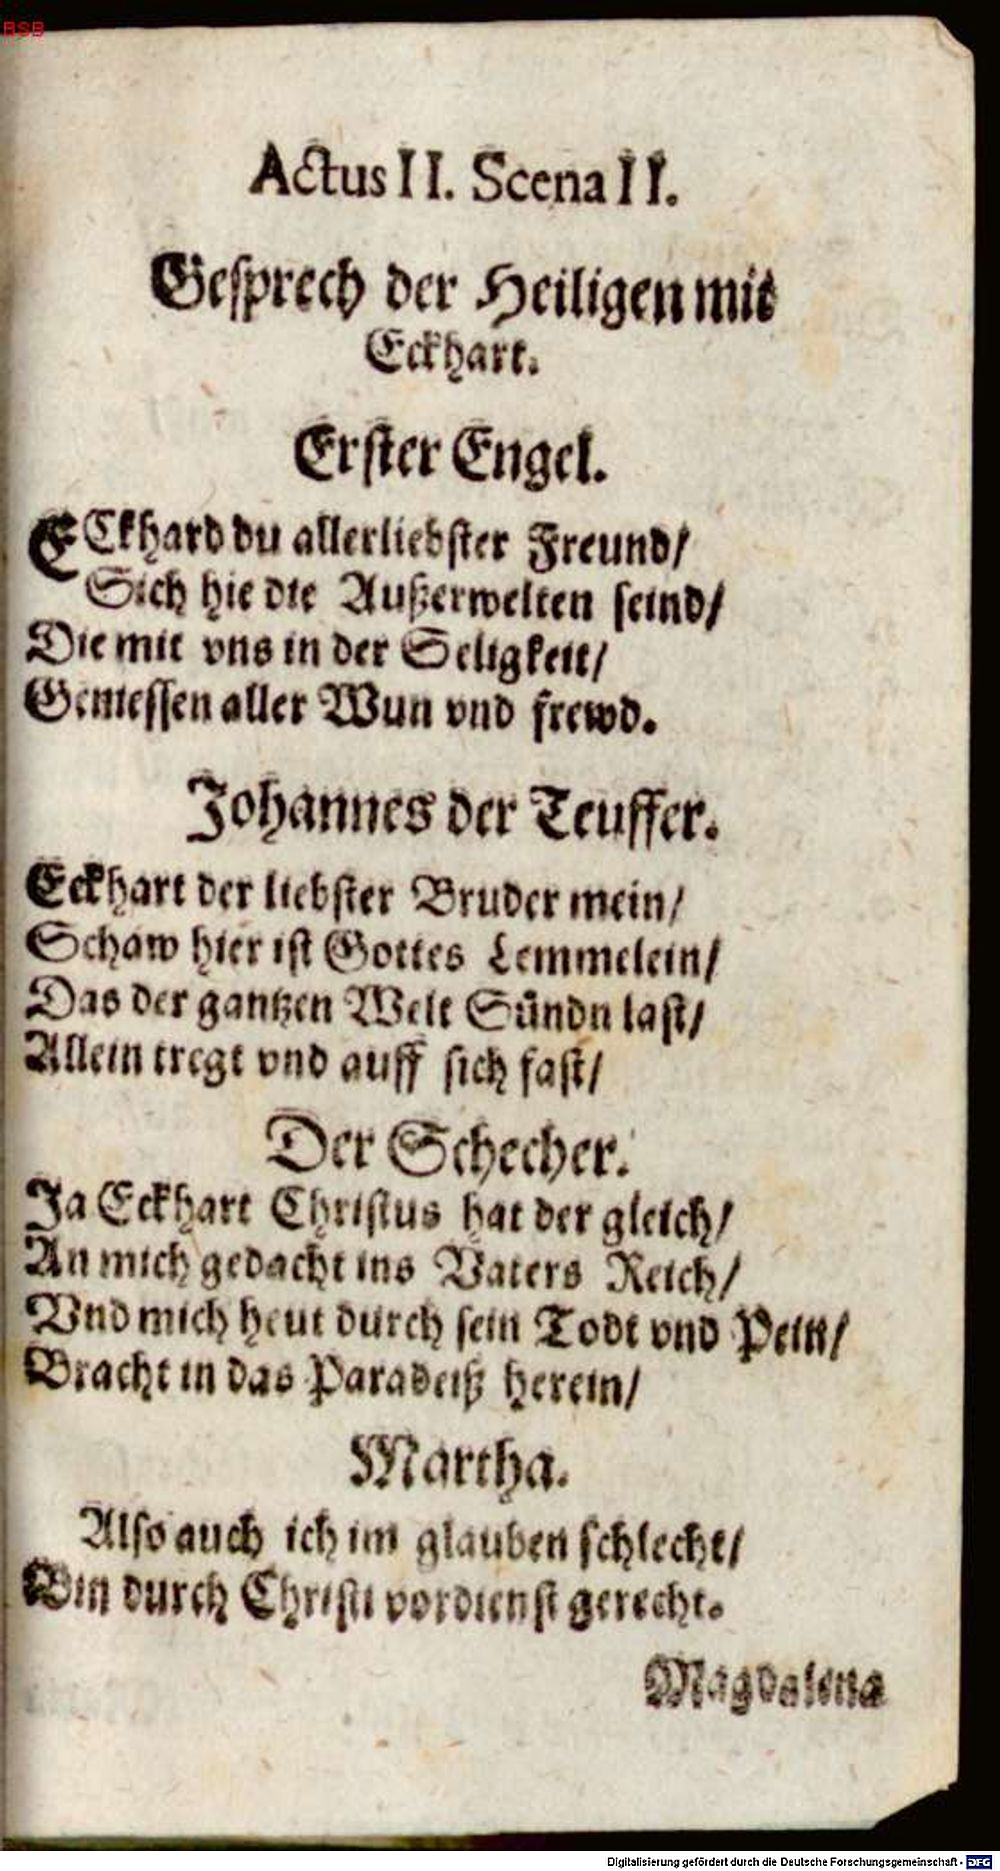 BSB
Actus II. Scena II.
Gesprech der Heiligen mit
Eckhart.
Erster Engel.
ECkhard du allerliebster Freund/
Sich hie die Außerwelten seind/
Die mit vns in der Seligkeit/
Geniessen aller Wun vnd frewd.
Johannes der Teuffer.
Eckhart der liebster Bruder mein/
Schaw hier ist Gottes Lemmelein/
Das der gantzen Welt Sündn last/
Allein tregt vnd auff sich fast/
Der Schecher.
Ja Eckhart Christus hat der gleich/
An mich gedacht ins Vaters Reich/
Vnd mich heut durch sein Todt vnd Pein/
Bracht in das Paradeiß herein/
Martha.
Also auch ich im glauben schlecht/
Bin durch Christi vordienst gerecht.
Magdalena
Digitalisierung gefördert durch die Deutsche Forschungsgemeinschaft - DFG